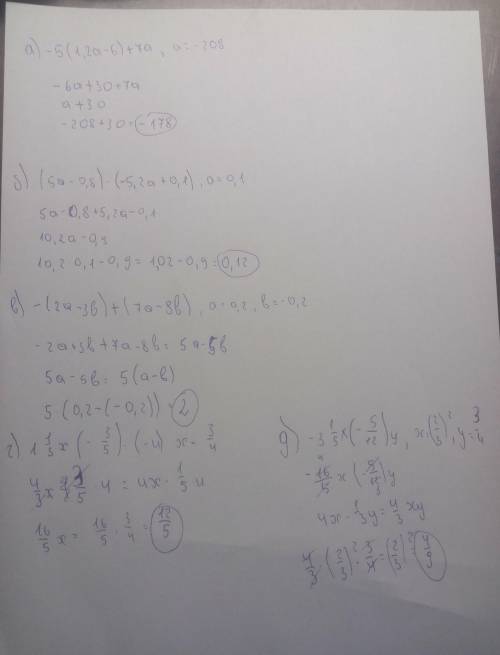 а) -5(1,2a-6)+7a, a=-208
-6a+30+7a
a+30
-208+30=-178
б) (5a-0,8)-(-5,2a+0,1), a=0,1
5a-0,8+5,2a-0,1
10,2a-0,9
10,2·0,1-0,9=1,02-0,9=0,12
в) -(2a-3b)+(7a-8b), a=0,2, b=-0,2
-2a+3b+7a-8b=5a-5b
5a-5b=5(a-b)
5(0,2-(-0,2))=2
г) 1 1/3 x (-3/5)·(-4) x=3/4
4/3 x · 4 = 4x·1/5·4
16/5 x = 16/5 · 3/4 = 12/5
д) -3 1/5 x (-5/12) y, x=(2/3)², y=3/4
-16/5 x (-5/12) y
4x·1/3y=4/3 xy
4/3·(2/3)²·3/4=(2/3)²=4/9